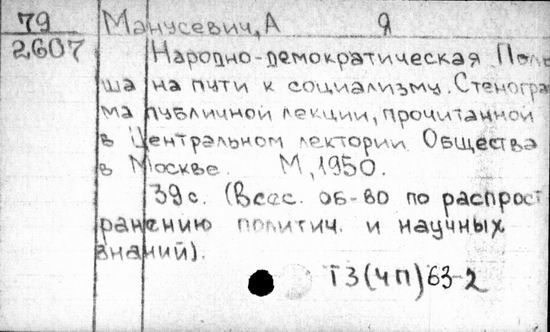 79 Манусевич, А Я
2607 Народно-демократическая Поль
ша на пути к социализму. Стеногра
ма публичной лекции, прочитанной
в Центральном лектории Общества
в Москве. М, 1950.
39 с. (Всес. об-во по распрост
ранению политич. и научных
знаний).
Т3(4П)63-2